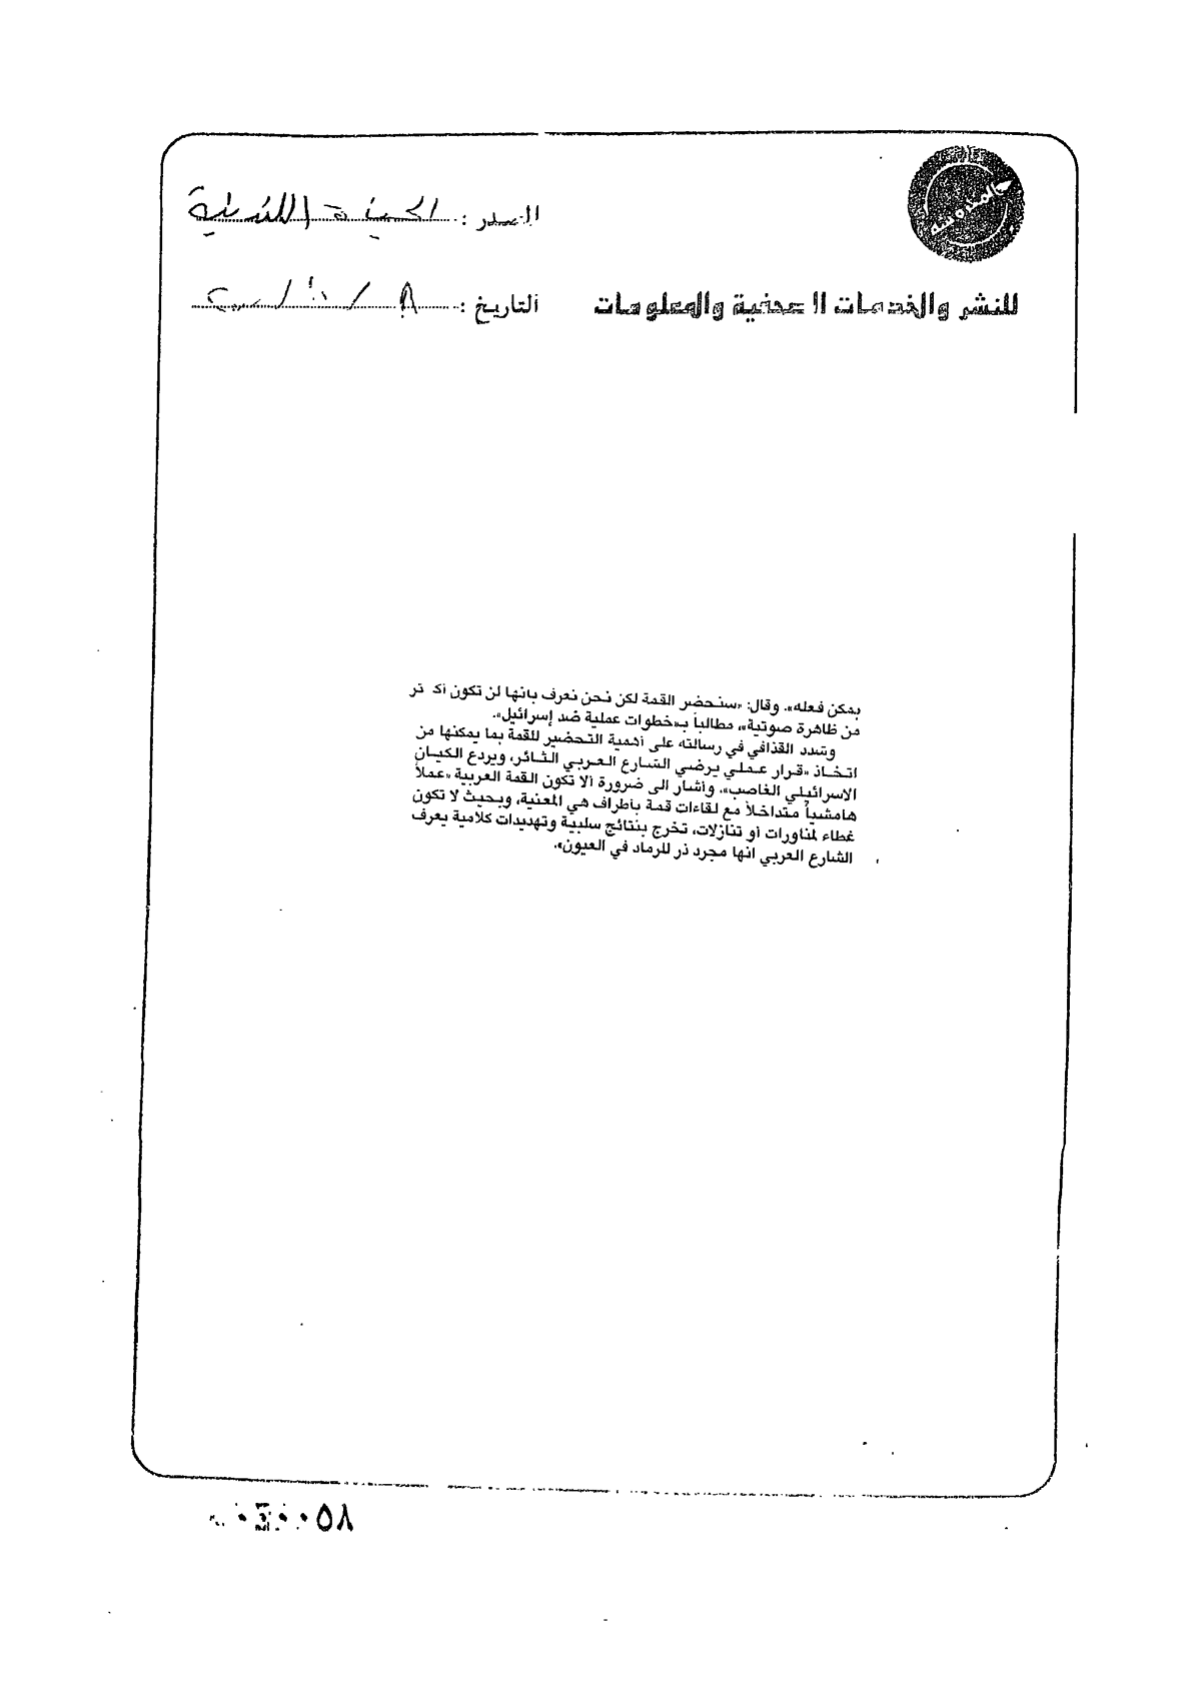 المصدر : الحياة اللندنية
للنشر والخدمات الصحفية والمعلومات
التاريخ : ٨ / ١٠ /
يمكن فعله». وقال: «سنحضر القمة لكن نحن نعرف بانها لن تكون أكثر
من ظاهرة صوتية»، مطالباً بـ«خطوات عملية ضد إسرائيل».
وشدد القذافي في رسالته على أهمية التحضير للقمة بما يمكنها من
اتخاذ «قرار عملي يرضي الشارع العربي الثائر، ويردع الكيان
الاسرائيلي الغاصب». وأشار الى ضرورة ألا تكون القمة العربية «عملاً
هامشياً متداخلاً مع لقاءات قمة بأطراف هي المعنية، وبحيث لا تكون
غطاء لمناورات أو تنازلات، تخرج بنتائج سلبية وتهديدات كلامية يعرف
الشارع العربي انها مجرد ذر للرماد في العيون».